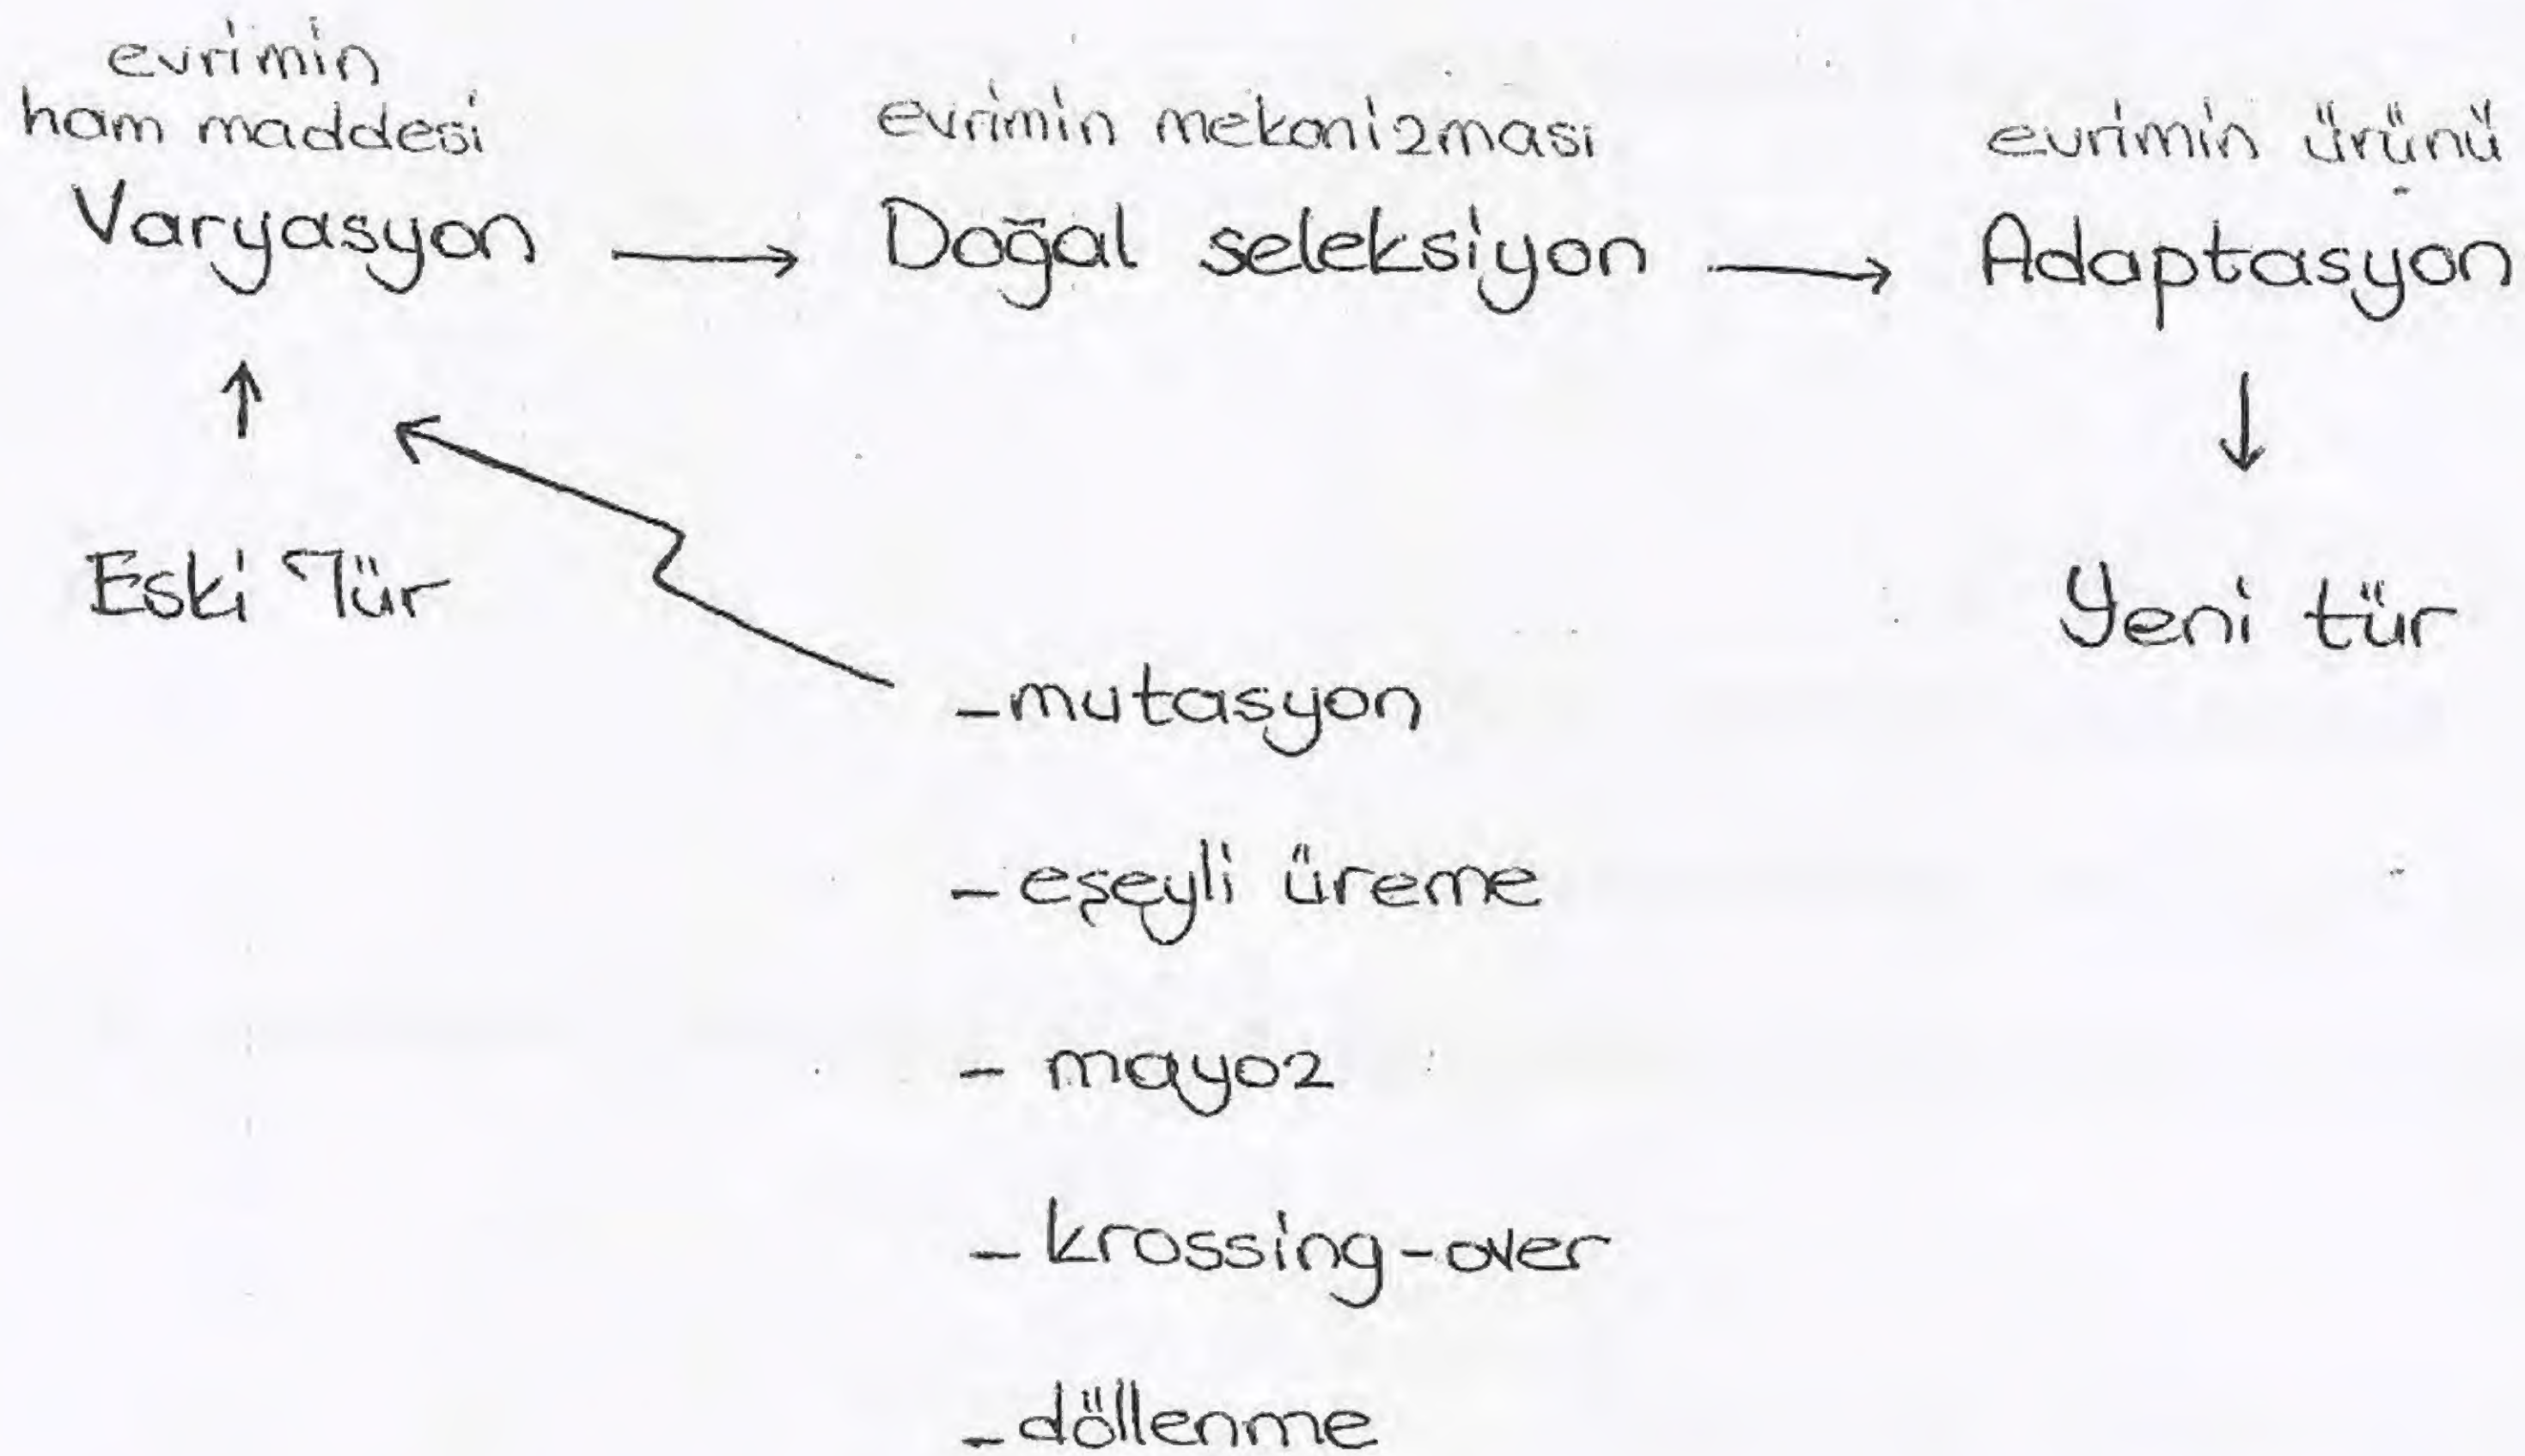 evrimin
ham maddesi
Varyasyon
evrimin mekanizması
Doğal seleksiyon
evrimin ürünü
Adaptasyon
Eski Tür
Yeni tür
-mutasyon
- eşeyli üreme
- mayoz
- krossing-over
-döllenme